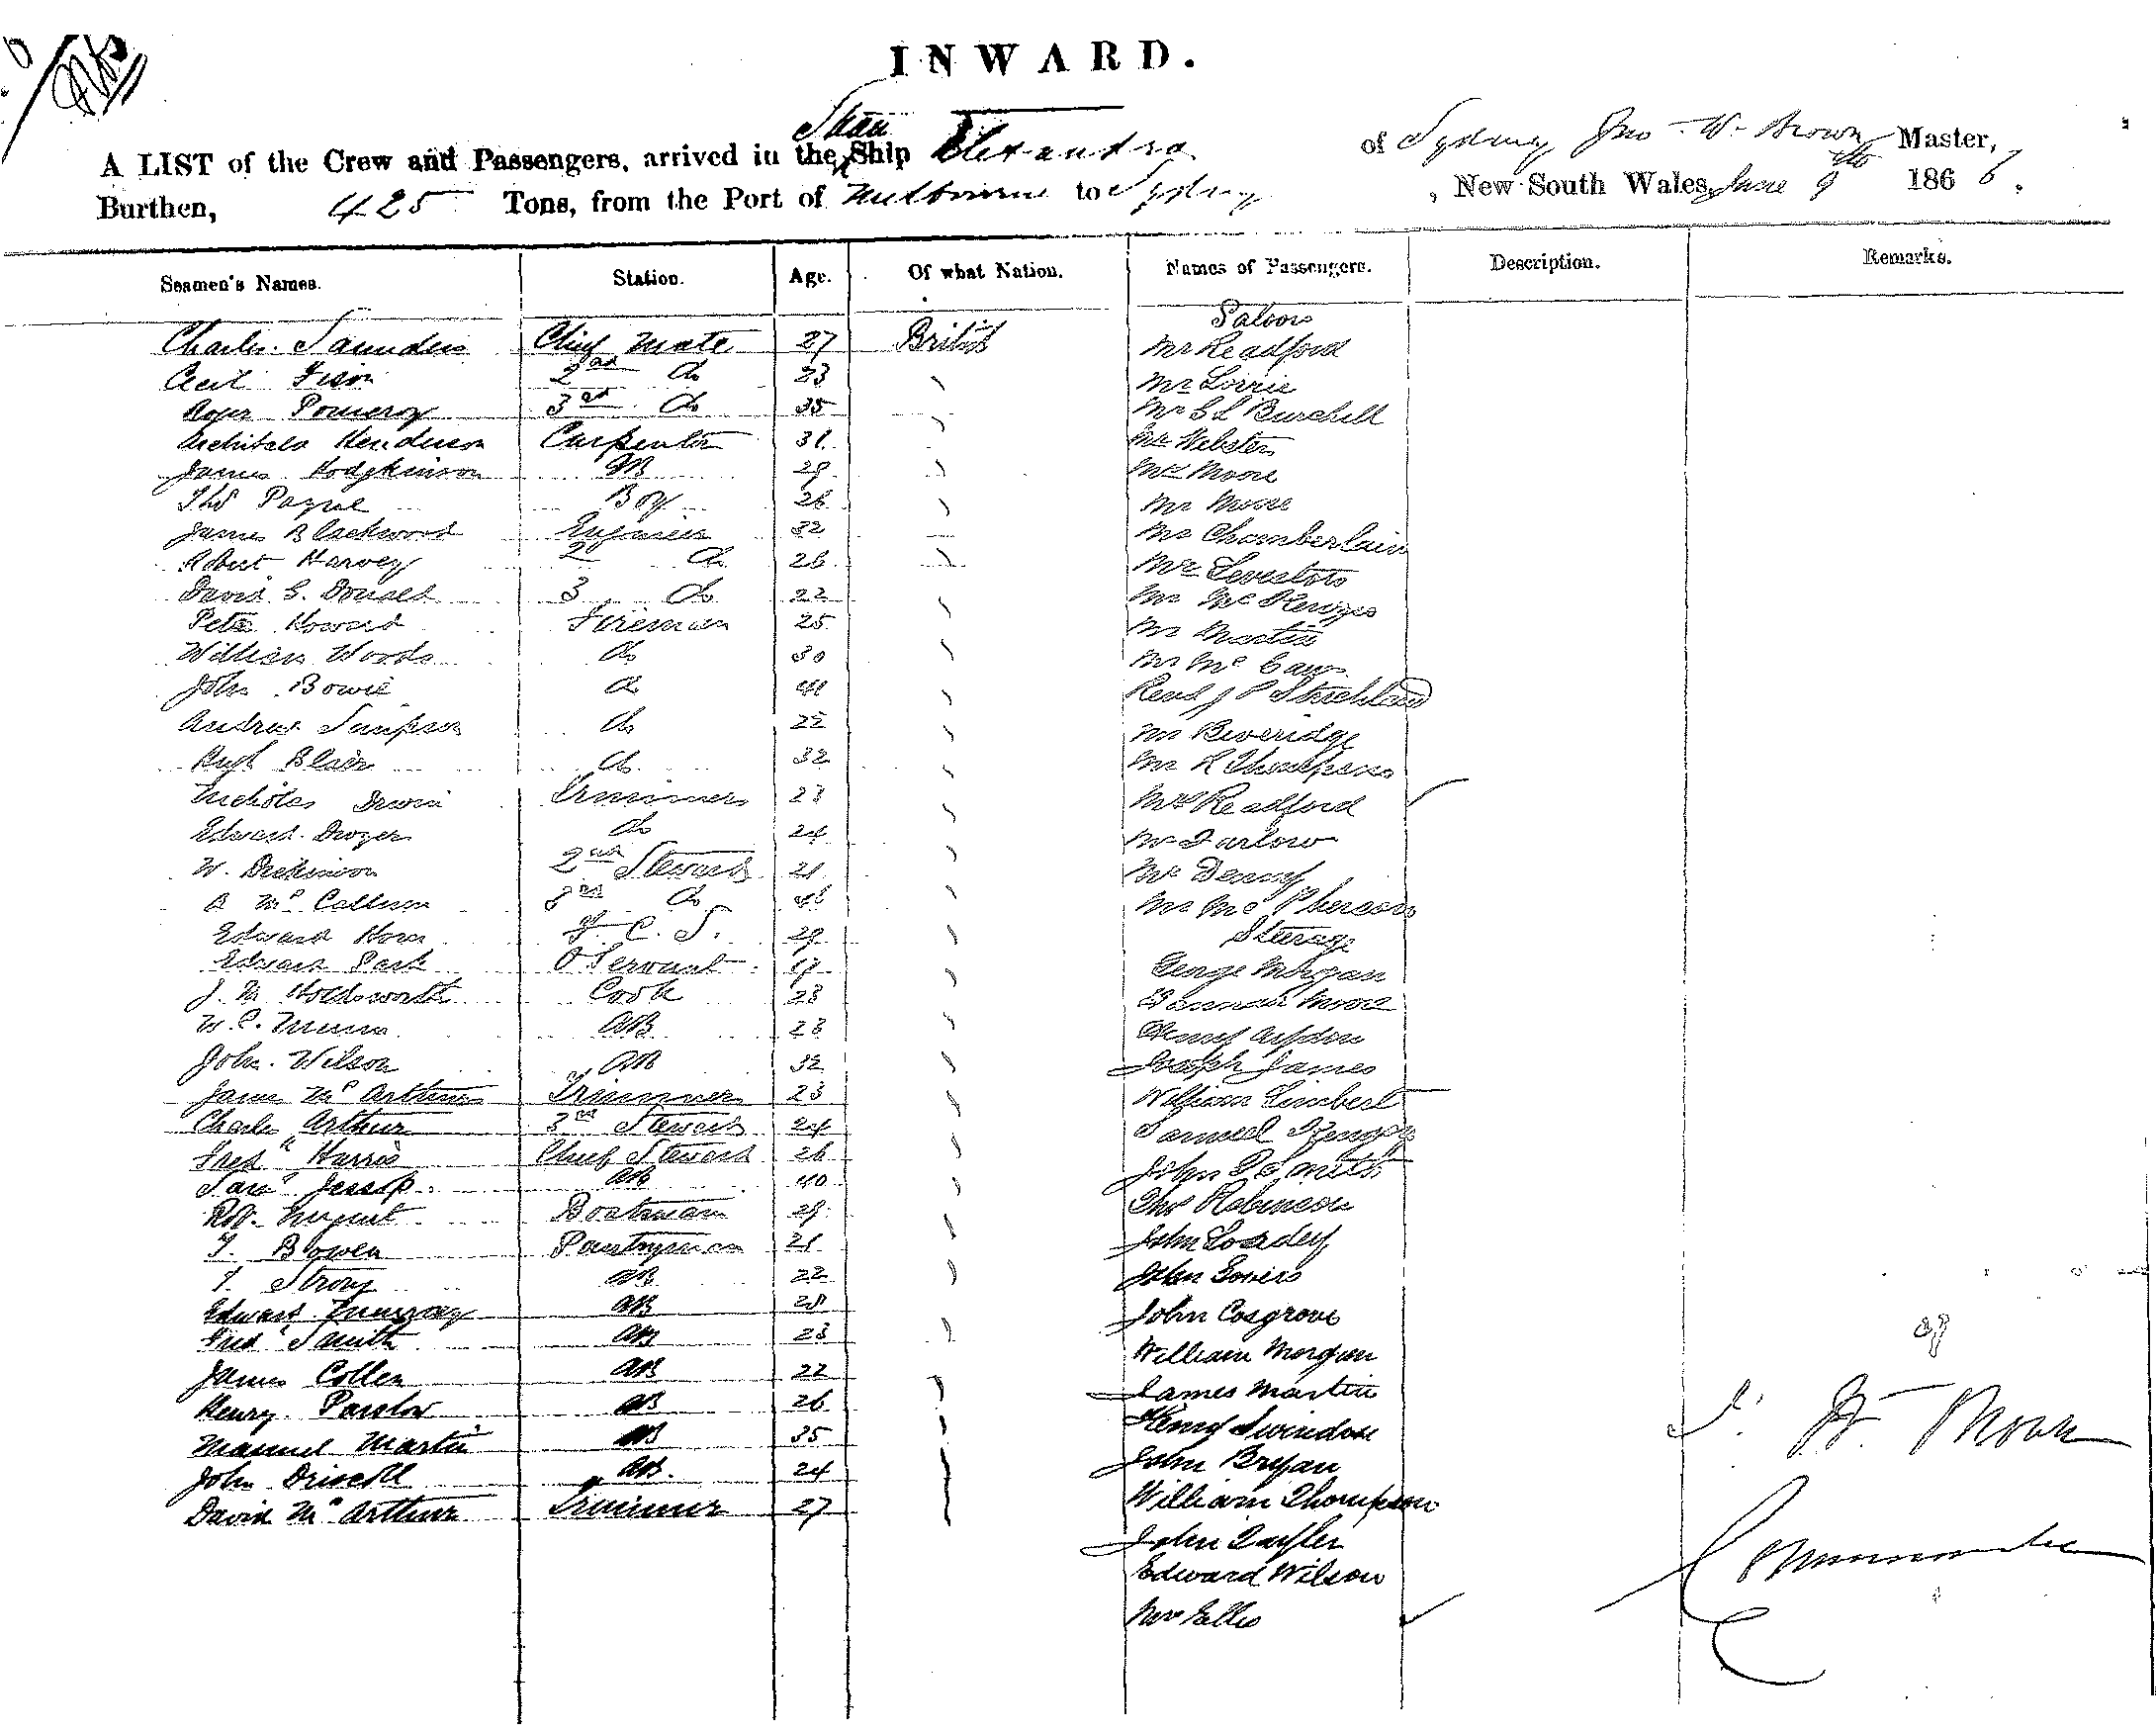 INWARD.
A LIST of the Crew and Passengers, arrived in the Steam Ship Alexandra of Sydney Jno. W. Brown Master,
Burthen, 425 Tons, from the Port of Melbourne to Sydney, New South Wales, June 9th 1866.
Seamen's Names. Station. Age. Of what Nation. Names of Passengers. Description. Remarks.
Saloon
Charles Saunders Chief Mate 27 British Mr Readford
Cecil Fison 2nd Do 23 Mr Lorrie
Roger Pomeroy 3rd Do 35 Mr Burchell
Archibald Henderson Carpenter 31 Mr Webster
James Hodgkinson AB 29 Moore
Thos Payne Boy 26 Mr Moore
James Blackwood Engineer 32 Mr Chamberlain
Robert Harvey 2 Do 26 Mr
David Donald 3 Do 22 Mr McKenzie
Peter Howard Fireman 25 Mr Martin
William Woods Do 30 Mr
John Bowie Do 41 Revd J P Strickland
Andrew Simpson Do 22 Mr Beveridge
Hugh Blair Do 32 Mr Thompson
Nicholas Irwin Trimmer 23 Mrs Readford
Edward Dwyer Do 24 Mr Farlow
W. Dickinson 2nd Steward 21 Mr Denny
McCallum 3rd Do Mr McPherson
Edward Horn F. C. S. 29 Steerage
Edward Park O Servant 17 George Morgan
J. M Holdsworth Cook 23 Hannah Moore
W. P. Munn AB 23 Henry
John Wilson AB 32 Joseph James
James McArthur Trimmer 23 William Limbert
Charles Arthur 3rd Steward 24 Samuel
Fredk Harris Chief Steward 26 John Smith
Saml Jessop AB 40 Thos Robinson
Robt Nugent Boatman 29 John
T. Bowen Pantryman 21 John
T. Strong AB 22 John Cosgrove
Edward Murray AB 28 William Morgan
Fredk Smith AB 23 James Martin
James Collen AB 22 Henry Swindon
Henry Parslow AB 26 John Bryan
Manuel Martin AB 35 William Thompson
John Driscoll AB. 24 John Tayler
David McArthur Trimmer 27 Edward Wilson
Mrs Ellis
J. W. Brown
Commander